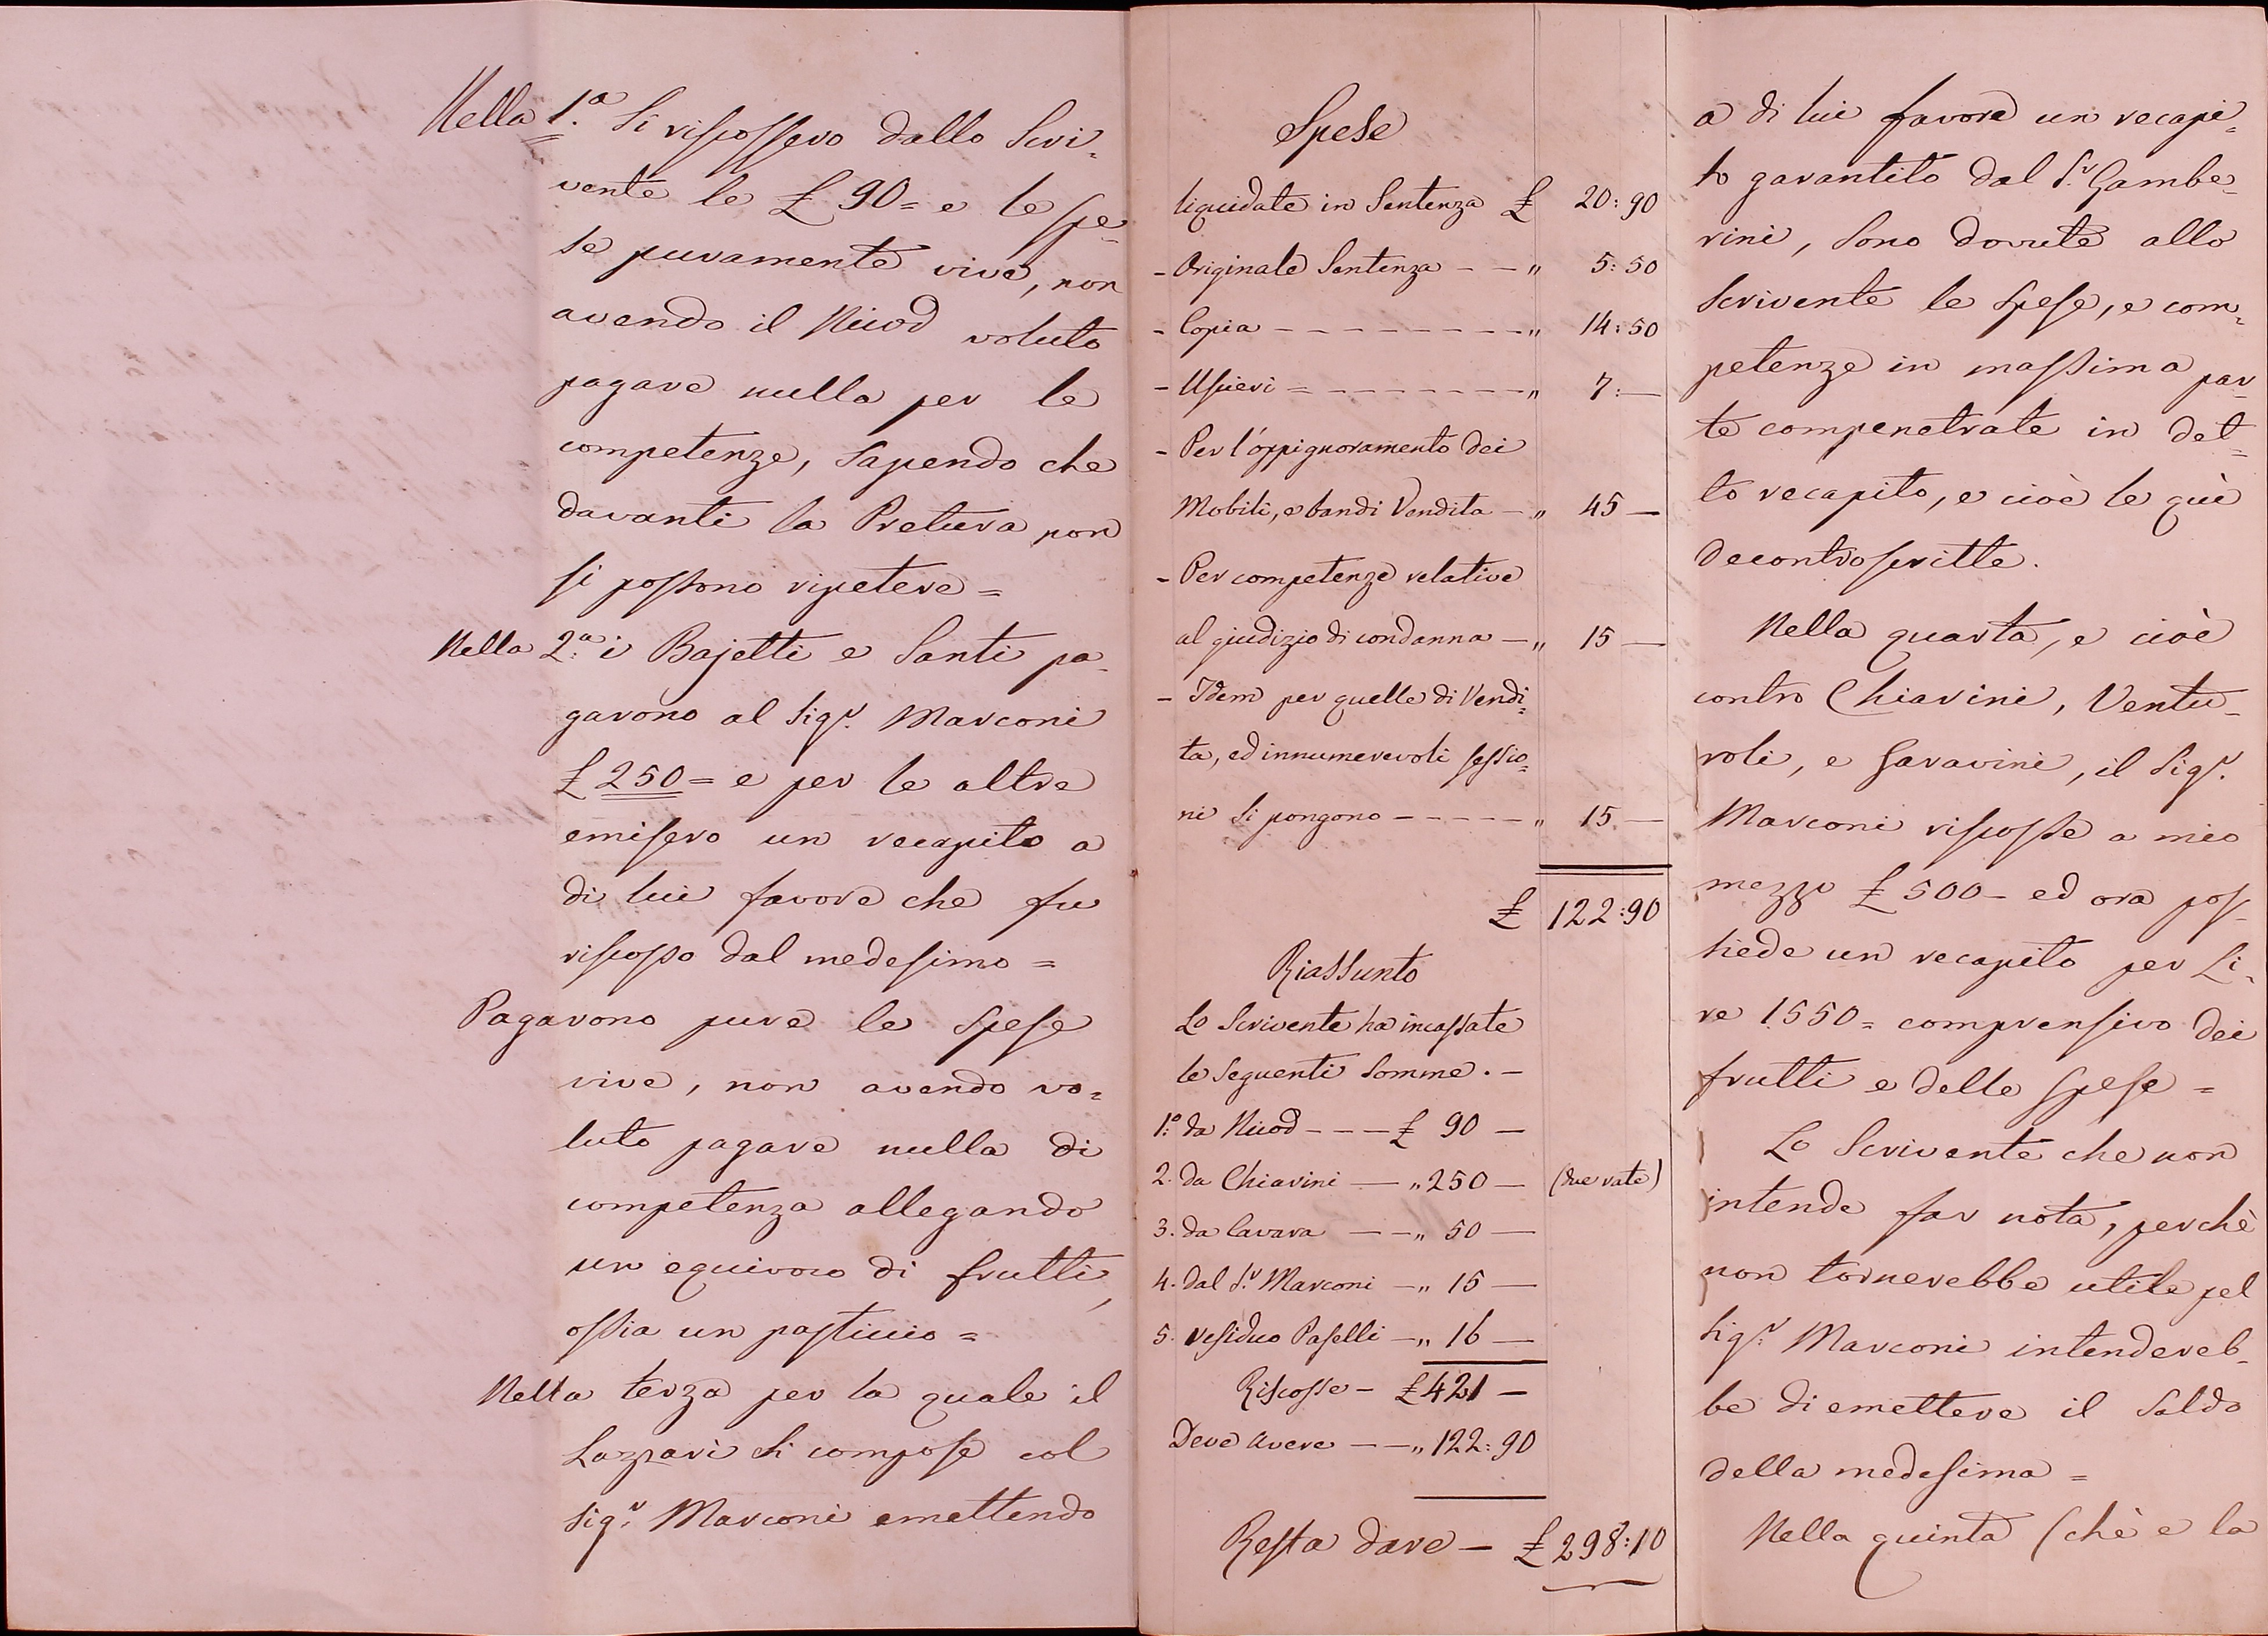 Nella 1.ª Si riscossero dallo Scri=
vente le £ 90= e le spe=
se puramente vive, non
avendo il Nicod voluto
pagare nulla per le
competenze, sapendo che
davanti la Pretura non
si possono ripetere =
Nella 2.ª i Bajetti e Santi pa=
garono al Sigr. Marconi
£ 250= e per le altre
emisero un recapito a
di lui favore che fu
riscosso dal medesimo =
Pagarono pure le spese
vive, non avendo vo=
luto pagare nulla di
competenza allegando
un equivoco di frutti,
ossia un pasticcio =
Nella terza per la quale il
Lazzari si compose col
Sigr. Marconi emettendo
Spese
liquidate in Sentenza £ 20:90
- Originale Sentenza - - " 5:50
- Copia - - - - - - - - " 14:50
- Uscieri = - - - - - - - " 7:—
- Per l'oppignoramento dei
Mobili, e bandi Vendita - " 45 —
- Per competenze relative
al giudizio di condanna — " 15 —
- Idem per quelle di Vendi=
ta, ed innumerevoli sessio=
ni si pongono - - - - - " 15 —
£ 122:90
Riassunto
Lo Scrivente ha incassate
le seguenti somme. -
1.º da Nicod - - - £ 90 —
2. da Chiarini — " 250 — (due rate)
3. da Cavara — - " 50 —
4. dal Sr. Marconi - " 15 —
5. residuo Paselli - " 16 —
Riscosse - £ 421 —
Deve avere - - " 122:90
Resta dare — £ 298:10
a di lui favore un recapi=
to garantito dal Sr. Gambe=
rini, sono dovute allo
Scrivente le spese, e com=
petenze in massima par=
te compenetrate in det=
to recapito, e cioè le quì
decontroscritte.
Nella quarta, e cioè
contro Chiarini, Ventu=
roli, e Garavini, il Sigr.
Marconi riscosse a mio
mezzo £ 500 - ed ora pos=
siede un recapito per Li=
re 1550= comprensivo dei
frutti e delle spese =
Lo Scrivente che non
intende far nota, perchè
non tornerebbe utile pel
Sigr. Marconi intendereb=
be di emettere il saldo
della medesima =
Nella quinta (chè e la